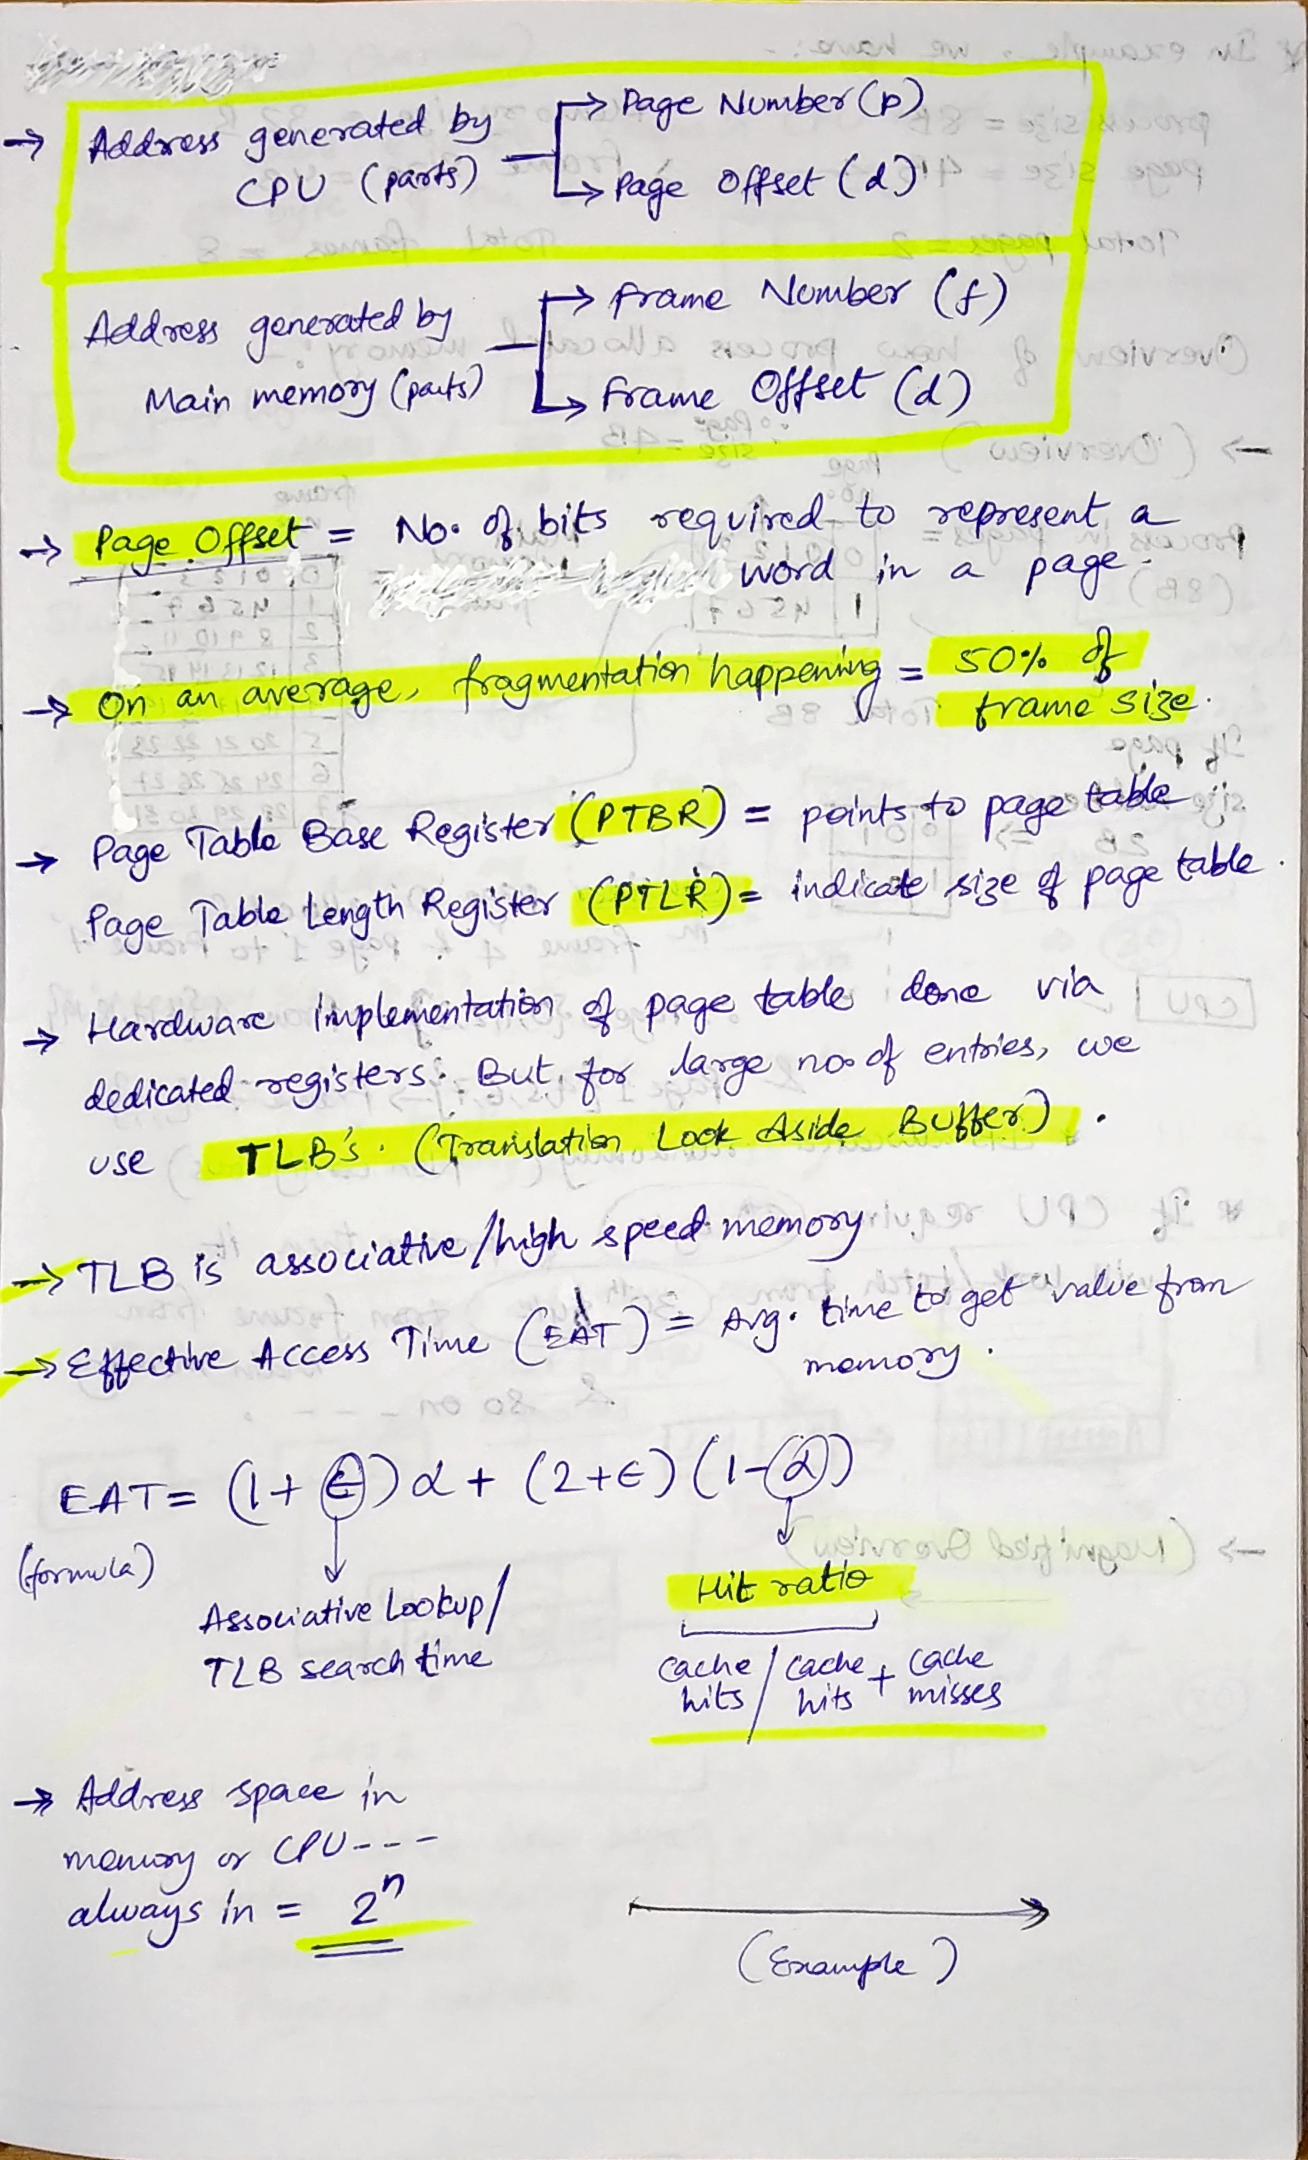 → Address generated by CPU (parts) → Page Number (p)
→ Page Offset (d)
Address generated by Main memory (parts) → Frame Number (f)
→ Frame Offset (d)
→ Page Offset = No. of bits required to represent a
word in a page.
→ On an average, fragmentation happening = 50% of
frame size.
→ Page Table Base Register (PTBR) = points to page table
Page Table Length Register (PTLR) = indicate size of page table.
→ Hardware implementation of page table done via
dedicated registers. But for large no. of entries, we
use TLB's. (Translation Look Aside Buffer).
→ TLB is associative/high speed memory
→ Effective Access Time (EAT) = Avg. time to get value from
memory.
EAT = (1+ϵ)α + (2+ϵ)(1-α)
(formula)
Associative Lookup/
TLB search time
Hit ratio
cache hits / cache hits + cache misses
→ Address space in
memory or CPU---
always in = 2ⁿ
(Example)